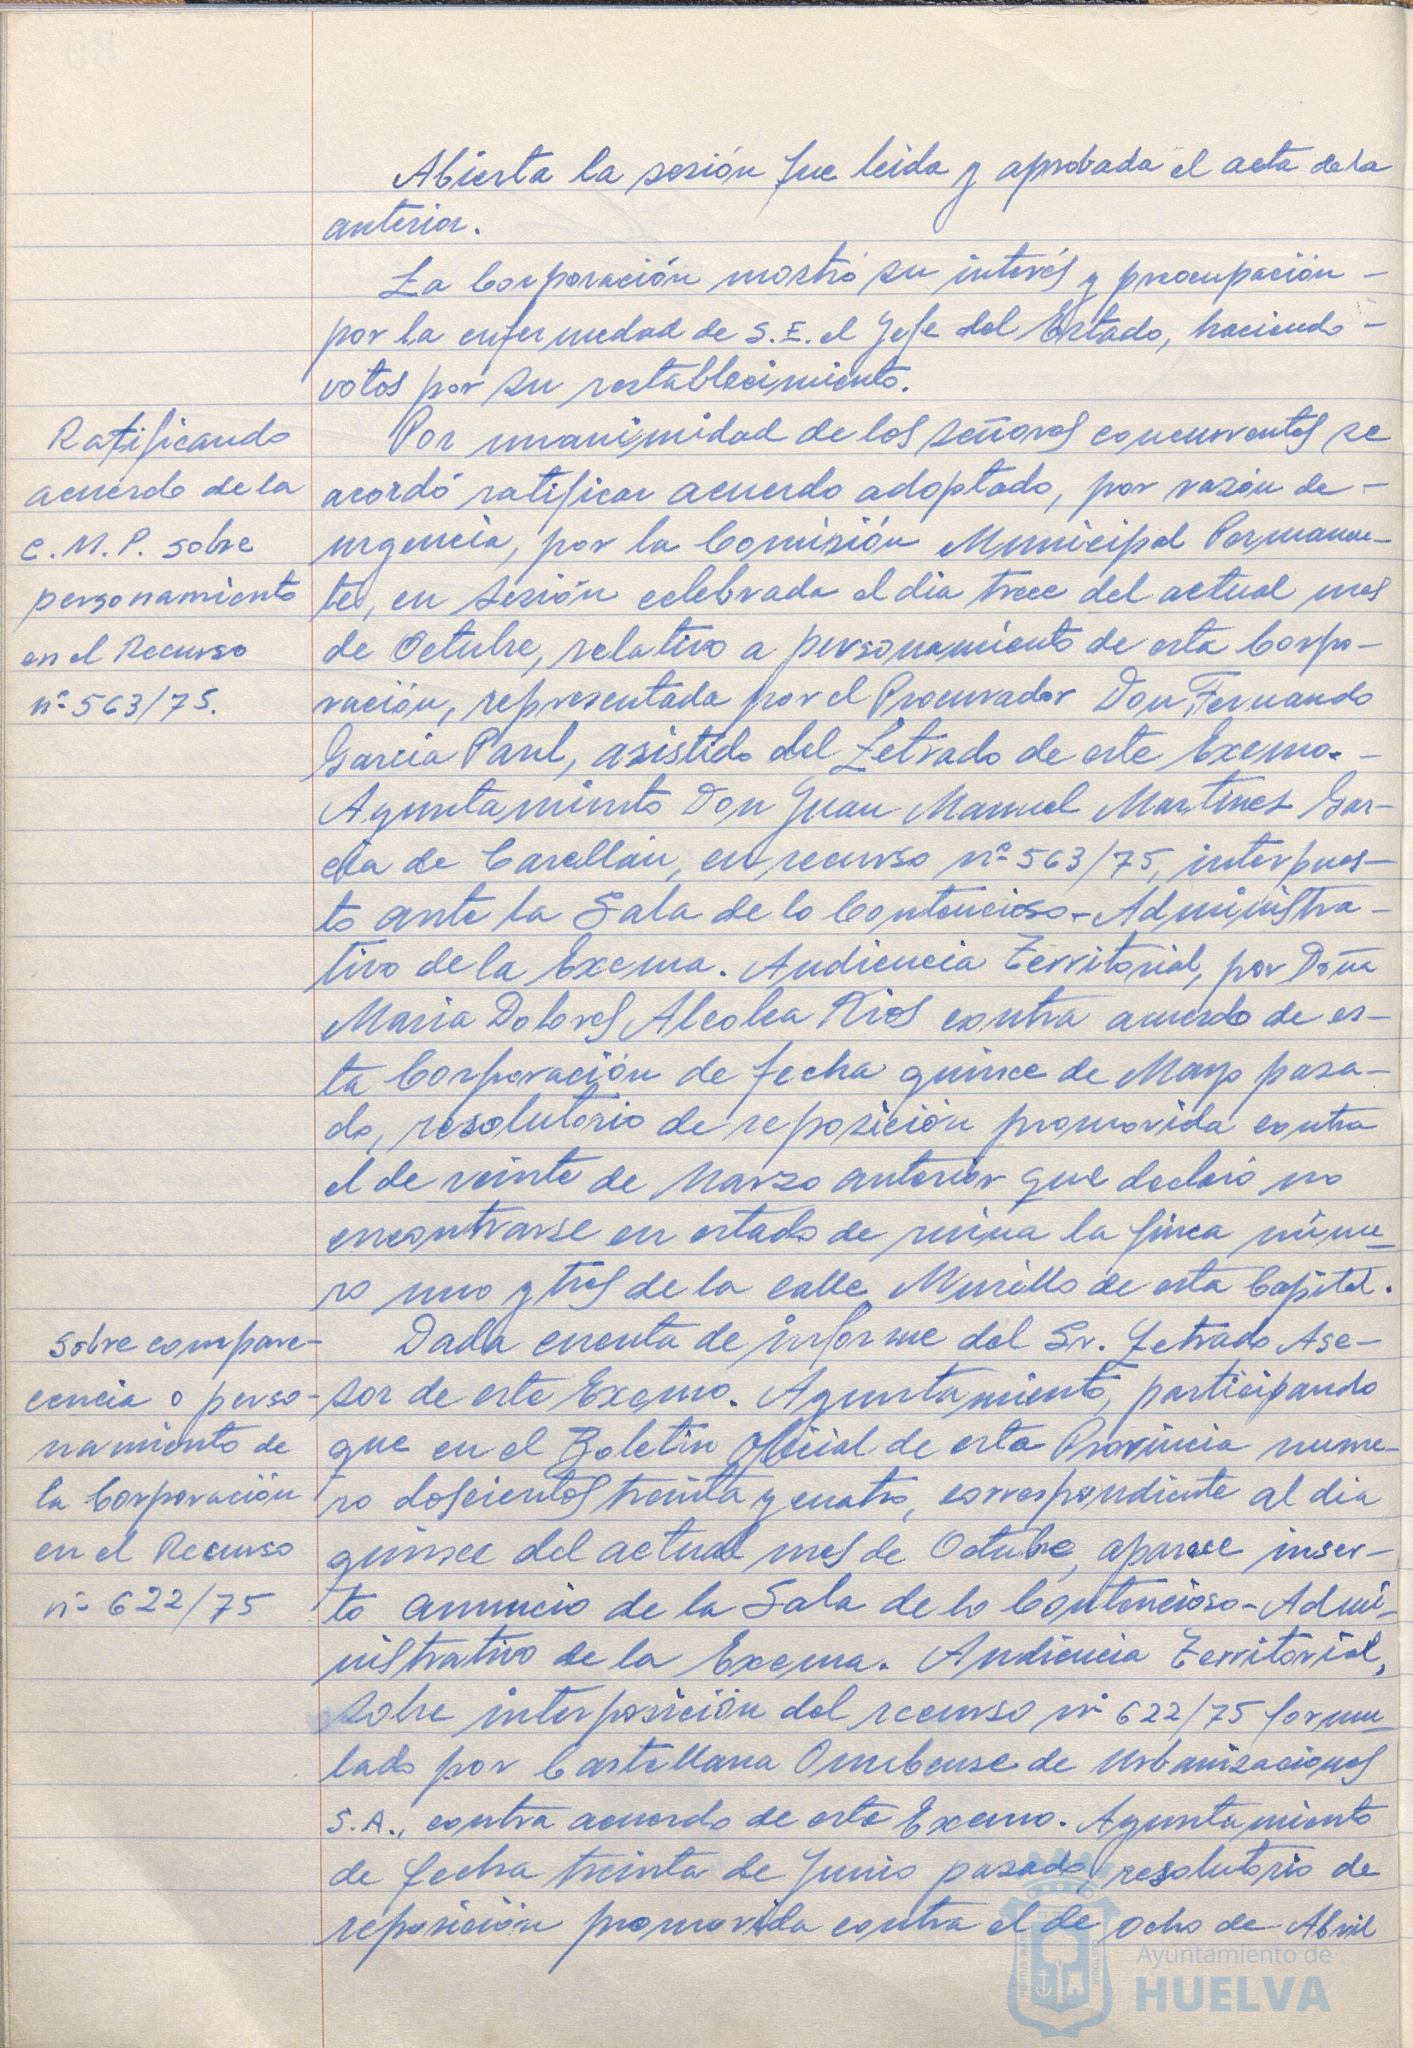 Abierta la sesión fue leida y aprobada el acta de la
anterior.
La Corporación mostró su interés y preocupación -
por la enfermedad de S.E. el Jefe del Estado, haciendo -
votos por su restablecimiento.
Ratificando
acuerdo de la
C.M.P. sobre
personamiento
en el Recurso
nº 563/75.
Por unanimidad de los señores concurrentes se
acordó ratificar acuerdo adoptado, por razón de -
urgencia, por la Comisión Municipal Permanen-
te, en sesión celebrada el dia trece del actual mes
de Octubre, relativo a personamiento de esta Corpo-
ración, representada por el Procurador Don Fernando
Garcia Parul, asistido del Letrado de este Excmo. -
Ayuntamiento Don Juan Manuel Martinez Gar-
cia de Casellan, en recurso nº 563/75, interpues-
to ante la Sala de lo Contencioso-Administra-
tivo de la Excma. Audiencia Territorial, por Doña
Maria Dolores Alcolea Rios contra acuerdo de es-
ta Corporación de fecha quince de Mayo pasa-
do, resolutorio de reposición promovida contra
el de veinte de Marzo anterior que declaró no
encontrarse en estado de ruina la finca núme-
ro uno y tres de la calle Murillo de esta Capital.
Sobre compare-
cencia o perso-
namiento de
la Corporación
en el Recurso
nº 622/75
Dada cuenta de informe del Sr. Letrado Ase-
sor de este Excmo. Ayuntamiento, participando
que en el Boletin Oficial de esta Provincia nume-
ro doscientos treinta y cuatro, correspondiente al dia
quince del actual mes de Octubre, aparece inser-
to anuncio de la Sala de lo Contencioso-Admi-
nistrativo de la Excma. Audiencia Territorial,
sobre interposición del recurso nº 622/75 formu-
lado por Castellana Onubense de Urbanizaciones
S.A., contra acuerdo de este Excmo. Ayuntamiento
de fecha treinta de Junio pasado, resolutorio de
reposición promovida contra el de ocho de Abril
Ayuntamiento de
HUELVA